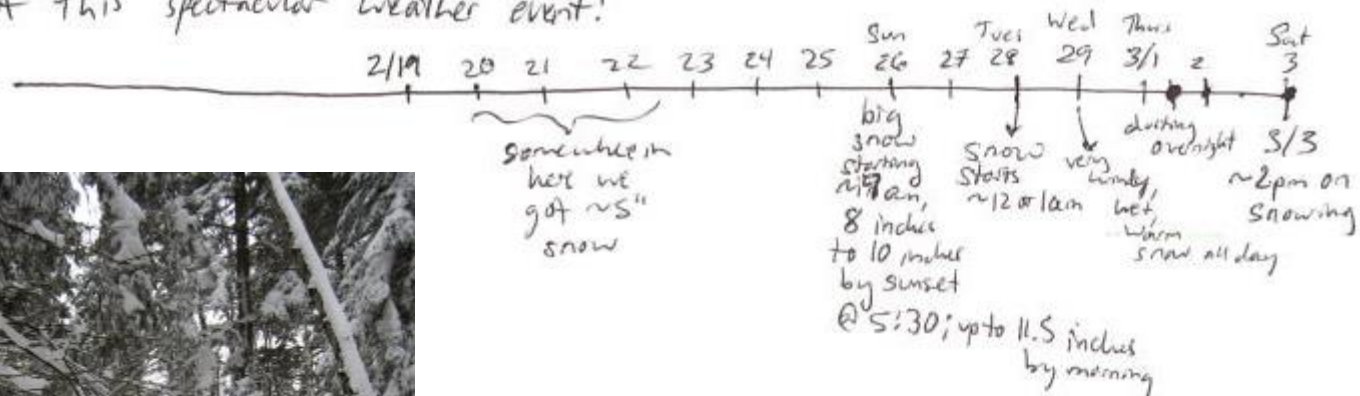 this spectacular weather event!
Sun Tues Wed Thurs Sat
2/19 20 21 22 23 24 25 26 27 28 29 3/1 2 3
somewhere in
here we
got ~5"
snow
big
snow
starting
am,
8 inches
to 10 inches
by sunset
@ 5:30; up to 11.5 inches
by morning
snow
starts
~12 or 1am
very
windy,
wet,
warm
snow all day
dusting
overnight
3/3
~2pm on
snowing